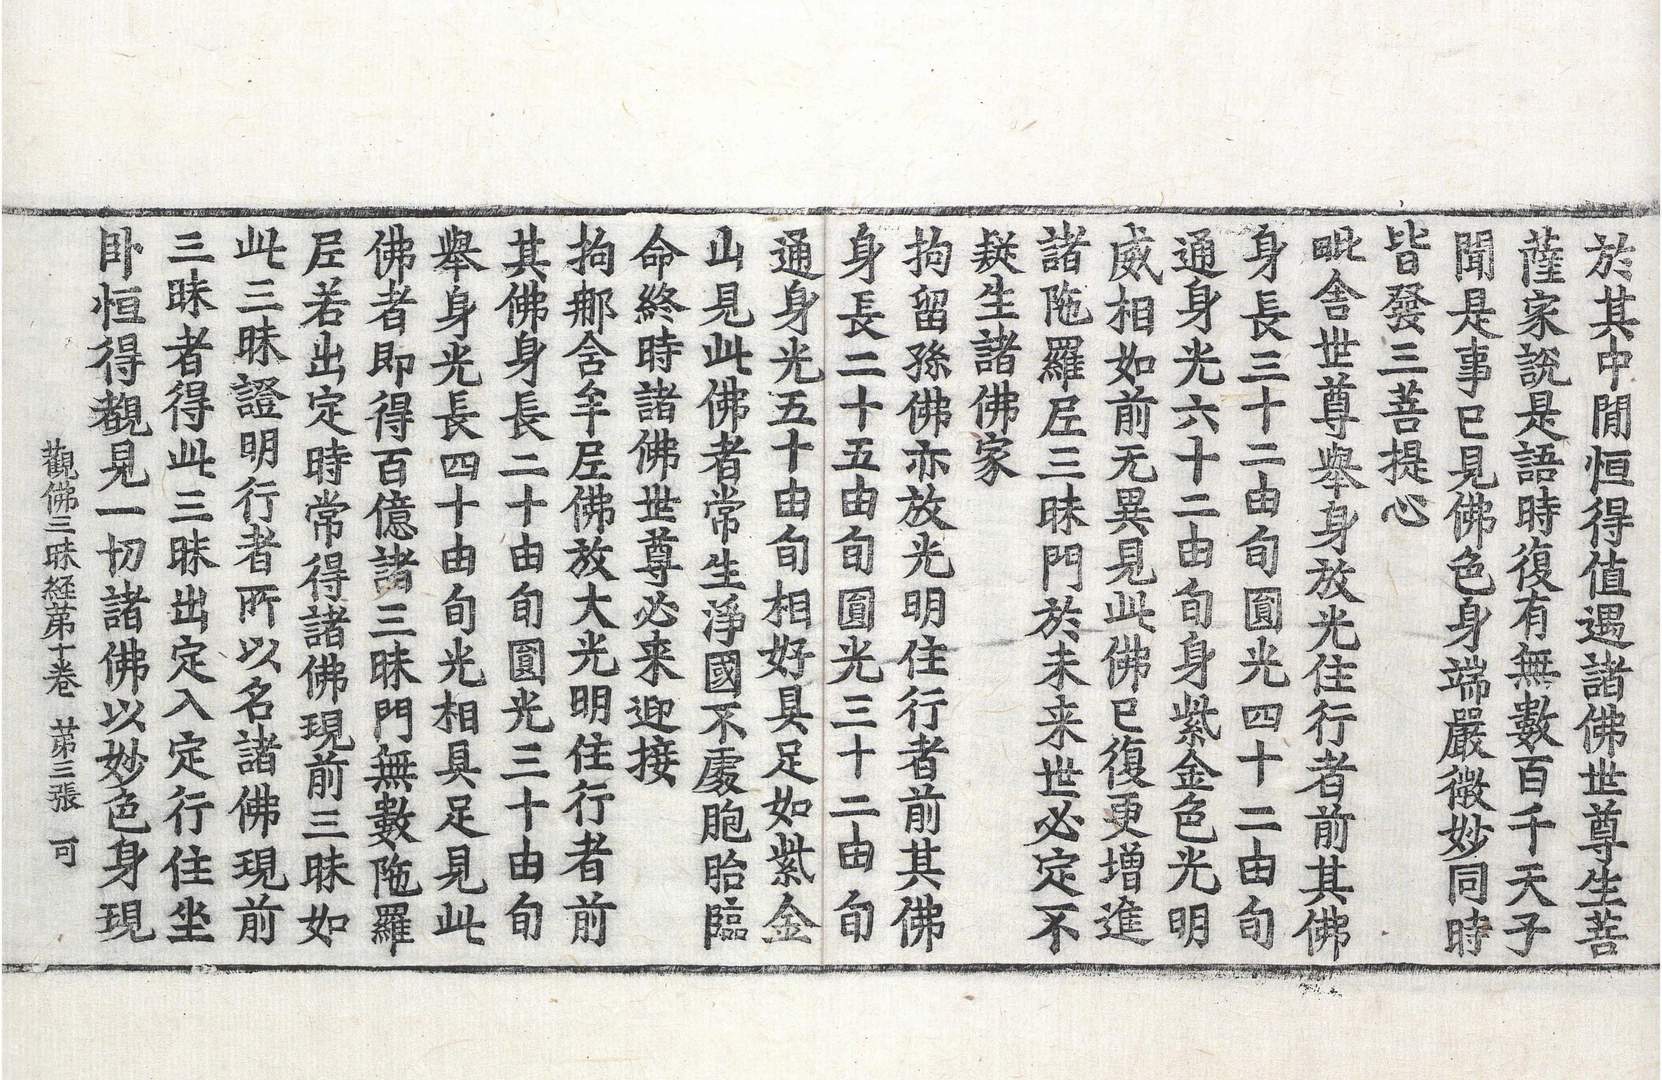 於其中閒恒得值遇諸佛世尊生菩
薩家說是語時復有無數百千天子
聞是事已見佛色身端嚴微妙同時
皆發三菩提心
毗舍世尊舉身放光住行者前其佛
身長三十二由旬圓光四十二由旬
通身光六十二由旬身紫金色光明
威相如前无異見此佛已復更增進
諸陁羅尼三昧門於未来世必定不
疑生諸佛家
拘留孫佛亦放光明住行者前其佛
身長二十五由旬圓光三十二由旬
通身光五十由旬相好具足如紫金
山見此佛者常生淨國不處胞胎臨
命終時諸佛世尊必来迎接
拘那舍牟尼佛放大光明住行者前
其佛身長二十由旬圓光三十由旬
舉身光長四十由旬光相具足見此
佛者即得百億諸三昧門無數陁羅
尼若出定時常得諸佛現前三昧如
此三昧證明行者所以名諸佛現前
三昧者得此三昧出定入定行住坐
卧恒得觀見一切諸佛以妙色身現
觀佛三昧経苐十卷 苐三張 可